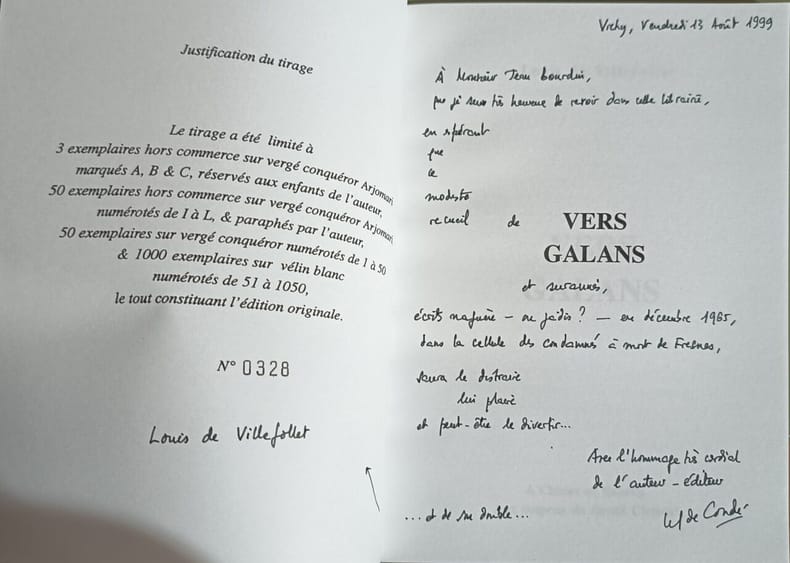 Justification du tirage
Le tirage a été limité à
3 exemplaires hors commerce sur vergé conquéror Arjomari
marqués A, B & C, réservés aux enfants de l'auteur,
50 exemplaires hors commerce sur vergé conquéror Arjomari
numérotés de I à L, & paraphés par l'auteur,
50 exemplaires sur vergé conquéror numérotés de 1 à 50
& 1000 exemplaires sur vélin blanc
numérotés de 51 à 1050,
le tout constituant l'édition originale.
N° 0328
Louis de Villefollet
Vichy, Vendredi 13 Août 1999
À Monsieur Jean Bourdin,
que je suis très heureux de revoir dans cette librairie,
en espérant
que
ce
modeste
recueil de VERS
GALANS
et surannés,
écrits naguère – ou jadis ? – en décembre 1965,
dans la cellule des condamnés à mort de Fresnes,
saura le distraire
lui plaire
et peut-être le divertir...
Avec l'hommage très cordial
de l'auteur-éditeur
... et de son double...
de Condé